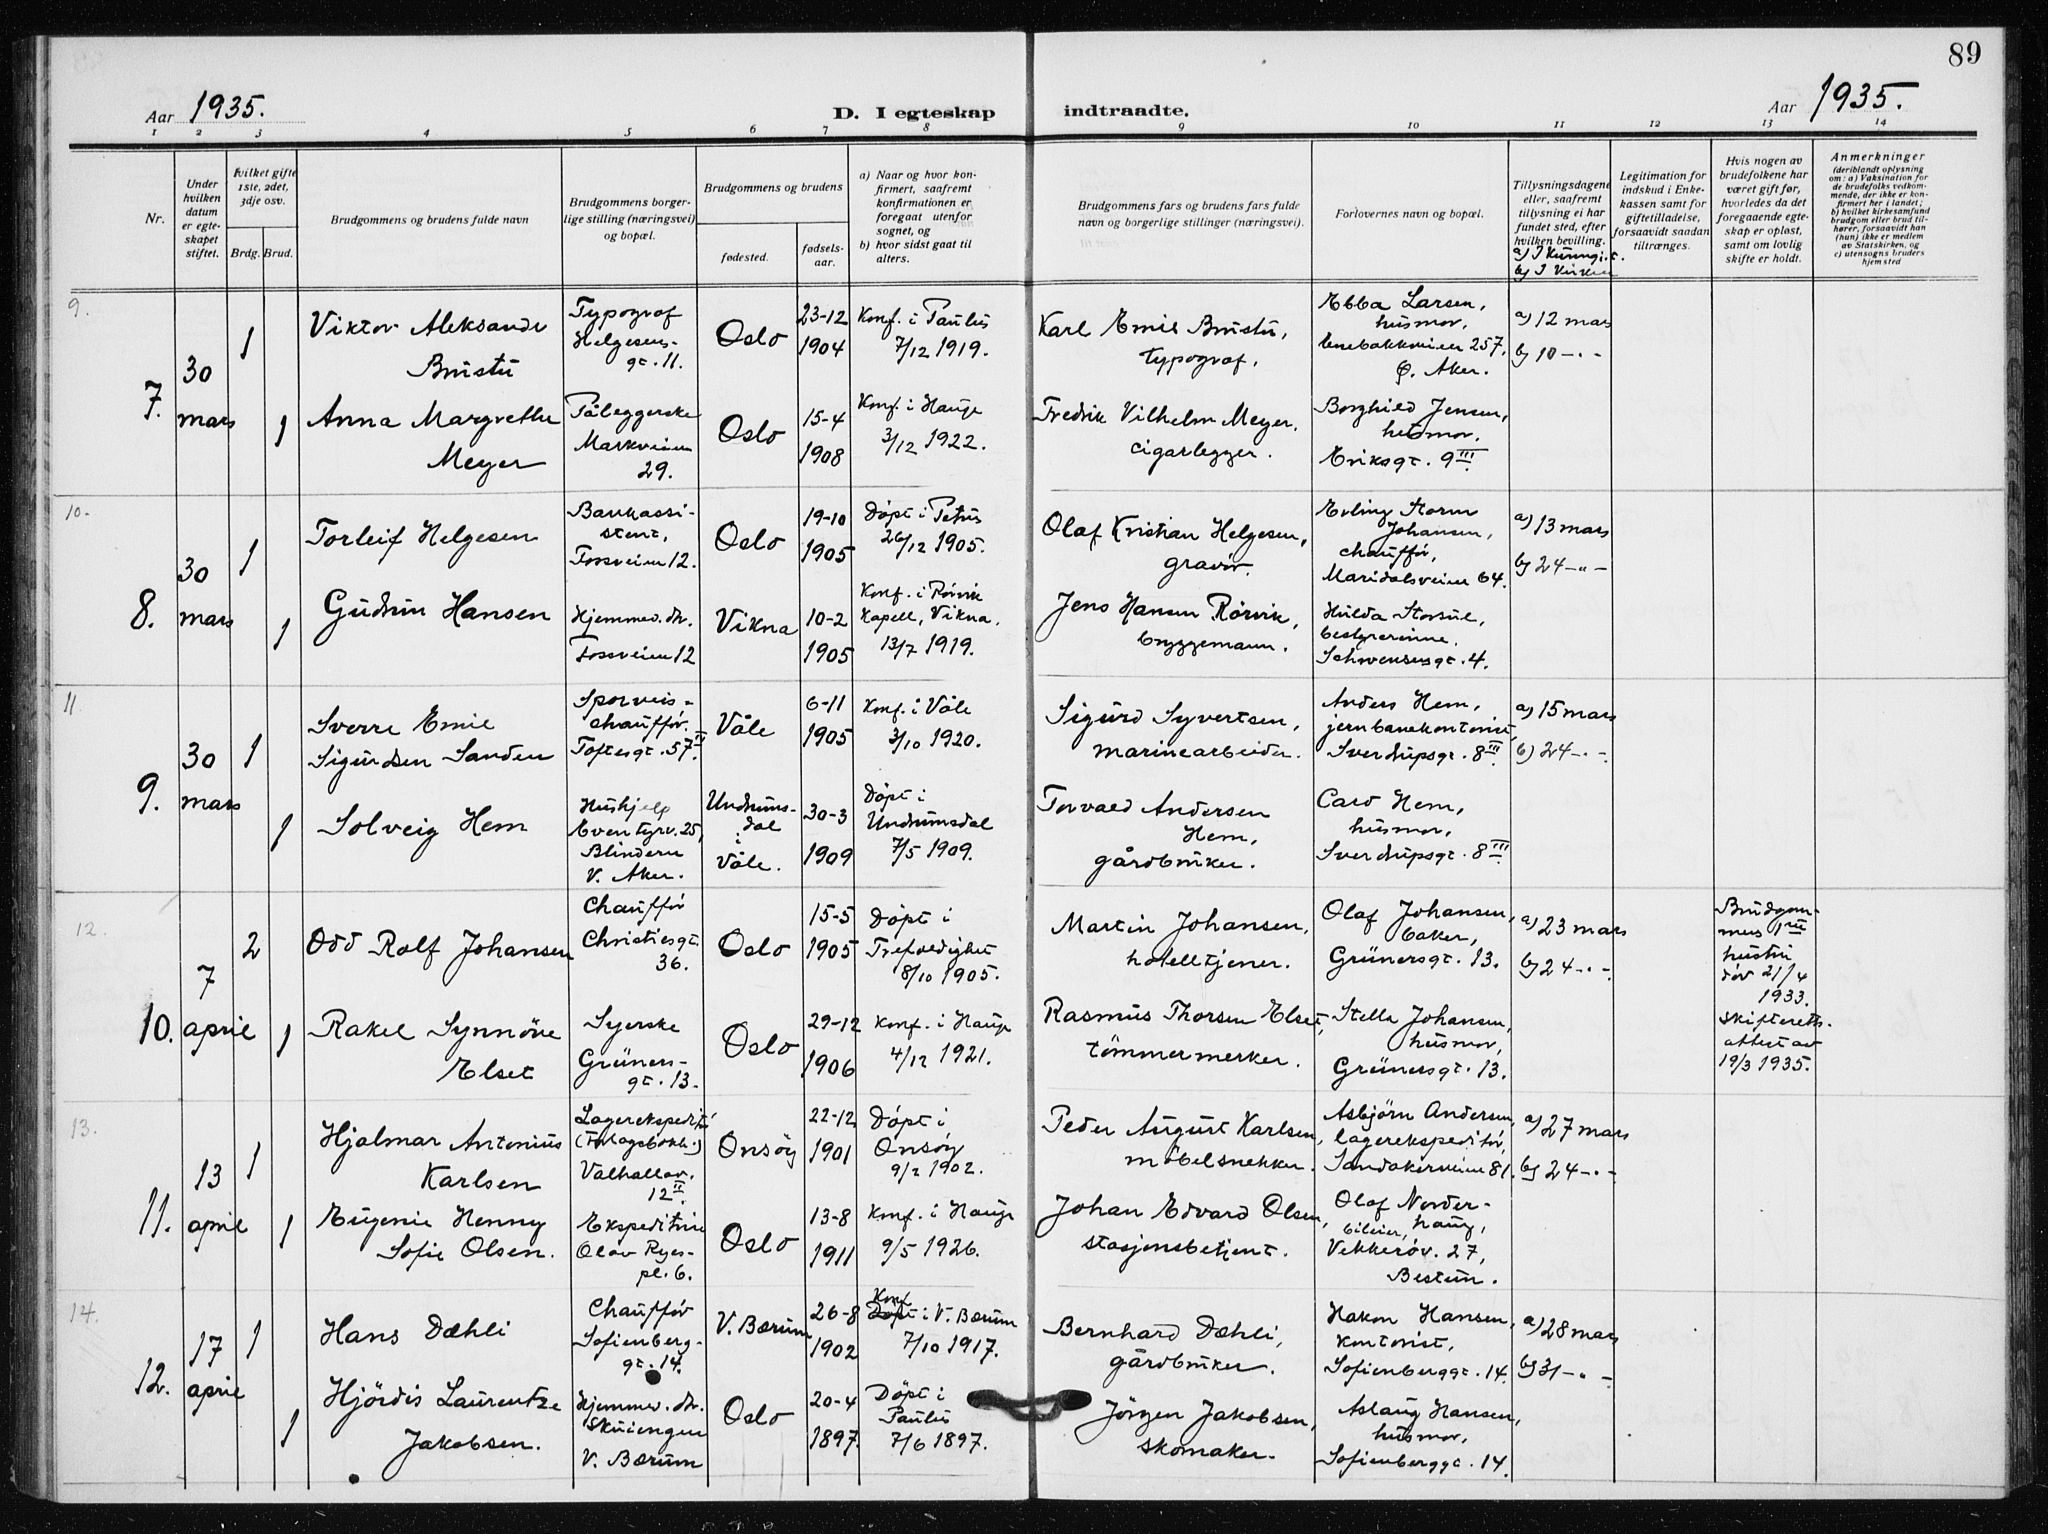 89
Aar 1935.
D. I egteskap indtraadte.
Aar 1935.
1 2 3 4 5 6 7 8 9 10 11 12 13 14
Nr.
Under
hvilken
datum
er egte-
skapet
stiftet.
Hvilket gifte
1ste, 2det,
3dje osv.
Brdg. Brud.
Brudgommens og brudens fulde navn
Brudgommens borger-
lige stilling (næringsvei)
og bopæl.
Brudgommens og brudens
fødested.
fødsels-
aar.
a) Naar og hvor kon-
firmert, saafremt
konfirmationen er
foregaat utenfor
sognet, og
b) hvor sidst gaat til
alters.
Brudgommens fars og brudens fars fulde
navn og borgerlige stillinger (næringsvei).
Forlovernes navn og bopæl.
Tillysningsdagene
eller, saafremt
tillysning ei har
fundet sted, efter
hvilken bevilling.
b) I Kirken
Legitimation for
indskud i Enke-
kassen samt for
giftetilladelse,
forsaavidt saadan
tiltrænges.
Hvis nogen av
brudefolkene har
været gift før,
hvorledes da det
foregaaende egte-
skap er opløst,
samt om lovlig
skifte er holdt.
Anmerkninger
(deriblandt oplysning
om: a) Vaksination for
de brudefolks vedkom-
mende, der ikke er kon-
firmert her i landet;
b) hvilket kirkesamfund
brudgom eller brud til-
hører, forsaavidt han
(hun) ikke er medlem
av Statskirken, og
c) utensogns bruders
hjemsted
9.
7.
30
mars
1
Viktor Aleksander
Brustu
Typograf
Helgesens-
gt. 11.
Oslo
23-12
1904
Konf. i Paulus
7/12 1919.
Karl Emil Brustu,
typograf.
Ebba Larsen,
husmor,
Enebakkveien 257,
Ø. Aker.
a) 12 mars
b) 10 - " -
1
Anna Margrethe
Meyer
Påleggerske
Markveien
29.
Oslo
15-4
1908
Konf. i Hauge
3/12 1922.
Fredrik Vilhelm Meyer.
cigarlegger.
Borghild Jensen,
husmor.
Eriksgt. 9 III
10.
8.
30
mars
1
Torleif Helgesen
Bankassi-
stent,
Fossveien 12.
Oslo
19-10
1905
Døpt i Petrus
26/12 1905.
Olaf Kristian Helgesen,
gravør.
Erling Storm
Johansen,
chauffør,
Maridalsveien 64.
a) 13 mars
b) 24 - " -
1
Gudrun Hansen
Hjemmev. dtr.
Fossveien 12
Vikna
10-2
1905
Konf. i Rørvik
Kapell, Vikna.
13/7 1919.
Jens Hansen Rørvik,
bryggemann.
Hulda Storsul,
bestyrerinne.
Schwensensgt. 4.
11.
9.
30
mars
1
Sverre Emil
Sigurdsen Sanden
Sporveis-
chauffør.
Toftesgt. 57 IV
Våle
6-11
1905
Konf. i Våle
3/10 1920.
Sigurd Syvertsen,
marinearbeider.
Anders Hem,
jernbanekontorist,
Sverdrupsgt. 8 III
a) 15 mars
b) 24 - " -
1
Solveig Hem
Hushjelp
Eventyrv. 25,
Blindern
V. Aker.
Undrums-
dal
i
Våle.
30-3
1909
Døpt i
Undrumsdal
7/5 1909.
Torvald Andersen
Hem,
gårdbruker.
Caro Hem,
husmor,
Sverdrupsgt. 8 III
12.
10.
7
april
2
Odd Rolf Johansen
Chauffør
Christiesgt.
36.
Oslo
15-5
1905
Døpt i
Trefoldighet
8/10 1905.
Martin Johansen,
hotelltjener.
Olaf Johansen,
baker,
Grünersgt. 13.
a) 23 mars
b) 24 - " -
Brudgom-
mens 1ste
hustru
død 21/4
1933.
Skifteretts-
attest av
19/3 1935.
1
Rakel Synnöve
Elset
Syerske
Grüners-
gt. 13.
Oslo
29-12
1906
Konf. i Hauge
4/12 1921.
Rasmus Thorsen Elset,
tömmermerker.
Stella Johansen,
husmor,
Grünersgt. 13.
13.
11.
13
april
1
Hjalmar Antonius
Karlsen
Lagerekspeditör
(Forlagsbokh.)
Valhallav.
12 II
Onsöy
22-12
1901
Döpt i
Onsöy
9/2 1902.
Peder August Karlsen,
möbelsnekker.
Asbjörn Andersen,
lagerekspeditör,
Sandakerveien 81.
a) 27 mars
b) 24 - " -
1
Eugenie Henny
Sofie Olsen.
Ekspeditrise
Olav Ryes-
pl. 6.
Oslo
13-8
1911
Konf. i Hauge
9/5 1926.
Johan Edvard Olsen,
stasjonsbetjent.
Olaf Norder-
haug,
bileier,
Vekkeröv. 27,
Bestum.
14.
12.
17
april
1
Hans Dæhli
Chauffør
Sofienberg-
gt. 14.
V. Bærum
26-8
1902
Konf.
Døpt i V. Bærum
7/10 1917.
Bernhard Dæhli,
gårdbruker.
Hakon Hansen,
kontorist,
Sofienberggt. 14.
a) 28 mars
b) 31 - " -
1
Hjördis Laurentze
Jakobsen.
Hjemmev. dtr.
Skuiengen
V. Bærum
Oslo
20-4
1897.
Döpt i
Paulus
7/6 1897.
Jörgen Jakobsen,
skomaker.
Aslaug Hansen,
husmor,
Sofienberggt. 14.